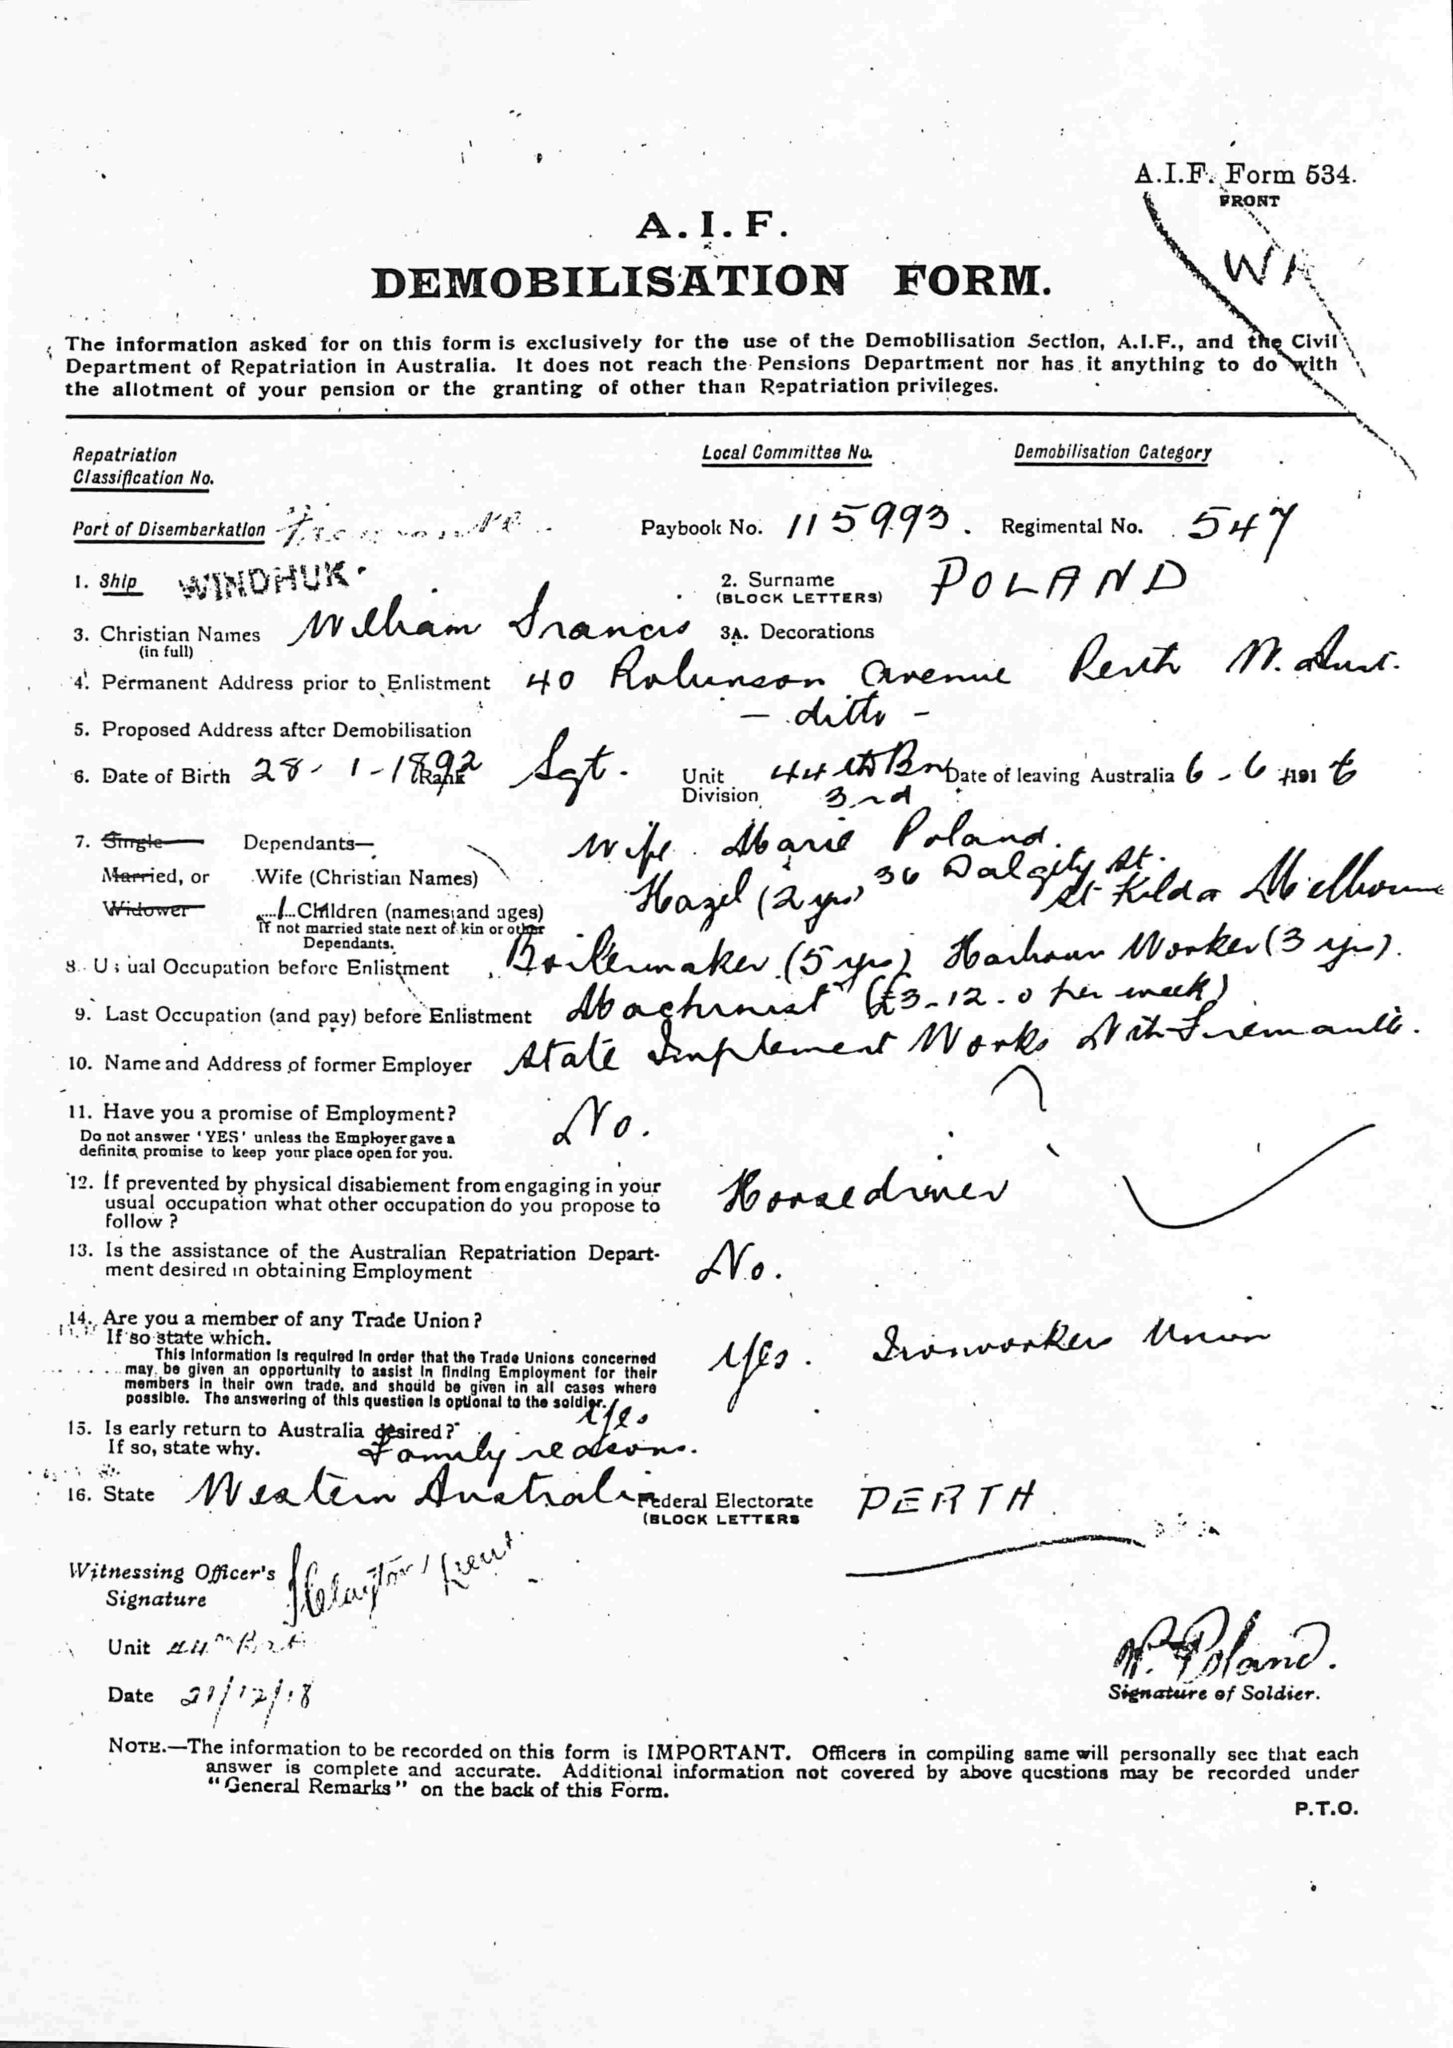 A.I.F. Form 534.
FRONT
WA
A. I. F.
DEMOBILISATION FORM.
The information asked for on this form is exclusively for the use of the Demobilisation Section, A.I.F., and the Civil
Department of Repatriation in Australia. It does not reach the Pensions Department nor has it anything to do with
the allotment of your pension or the granting of other than Repatriation privileges.
Repatriation
Classification No.
Local Committee No.
Demobilisation Category
Port of Disembarkation Fremantle Paybook No. 115993. Regimental No. 547
1. Ship WINDHUK. 2. Surname POLAND
(BLOCK LETTERS)
3. Christian Names William Francis 3A. Decorations
(in full)
4. Permanent Address prior to Enlistment 40 Robinson Avenue Perth W. Aust.
5. Proposed Address after Demobilisation - ditto -
6. Date of Birth 28-1-1892 Rank Sgt. Unit 44th Bn Date of leaving Australia 6-6-1916
Division 3rd
7. Single Dependants— Wife Marie Poland.
Married, or Wife (Christian Names) 36 Dalgety St.
Hazel (2 yrs) St Kilda Melbourne
Widower 1 Children (names and ages)
If not married state next of kin or other
Dependants.
8. Usual Occupation before Enlistment Boilermaker (5 yrs) Harbour Worker (3 yrs).
9. Last Occupation (and pay) before Enlistment Machinist (£3-12-0 per week)
10. Name and Address of former Employer State Implement Works Nth Fremantle.
11. Have you a promise of Employment? No.
Do not answer 'YES' unless the Employer gave a
definite promise to keep your place open for you.
12. If prevented by physical disablement from engaging in your
usual occupation what other occupation do you propose to Horsedriver
follow?
13. Is the assistance of the Australian Repatriation Depart-
ment desired in obtaining Employment No.
14. Are you a member of any Trade Union?
If so state which. Yes. Ironworkers Union
This information is required in order that the Trade Unions concerned
may be given an opportunity to assist in finding Employment for their
members in their own trade, and should be given in all cases where
possible. The answering of this question is optional to the soldier.
15. Is early return to Australia desired? Yes
If so, state why. Family reasons.
16. State Western Australia Federal Electorate PERTH
(BLOCK LETTERS
Witnessing Officer's
Signature Clayton Lieut
Unit 44th Batt
Date 21/12/18
W. Poland.
Signature of Soldier.
NOTE.—The information to be recorded on this form is IMPORTANT. Officers in compiling same will personally see that each
answer is complete and accurate. Additional information not covered by above questions may be recorded under
"General Remarks" on the back of this Form.
P.T.O.